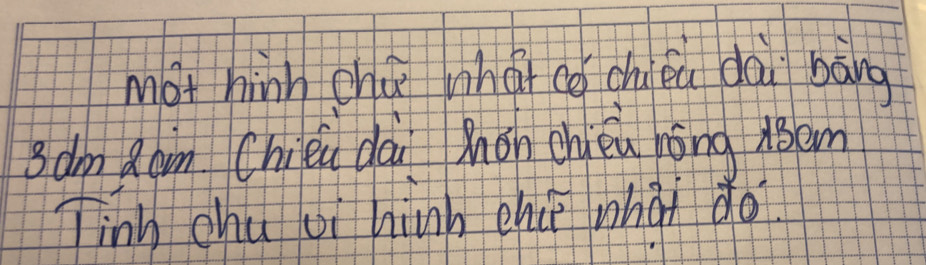 Một hình chữ nhật có chiều dài bằng
3dm 2cm. Chiều dài hơn chiều rộng 13cm
Tính chu vi hình chữ nhật đó.